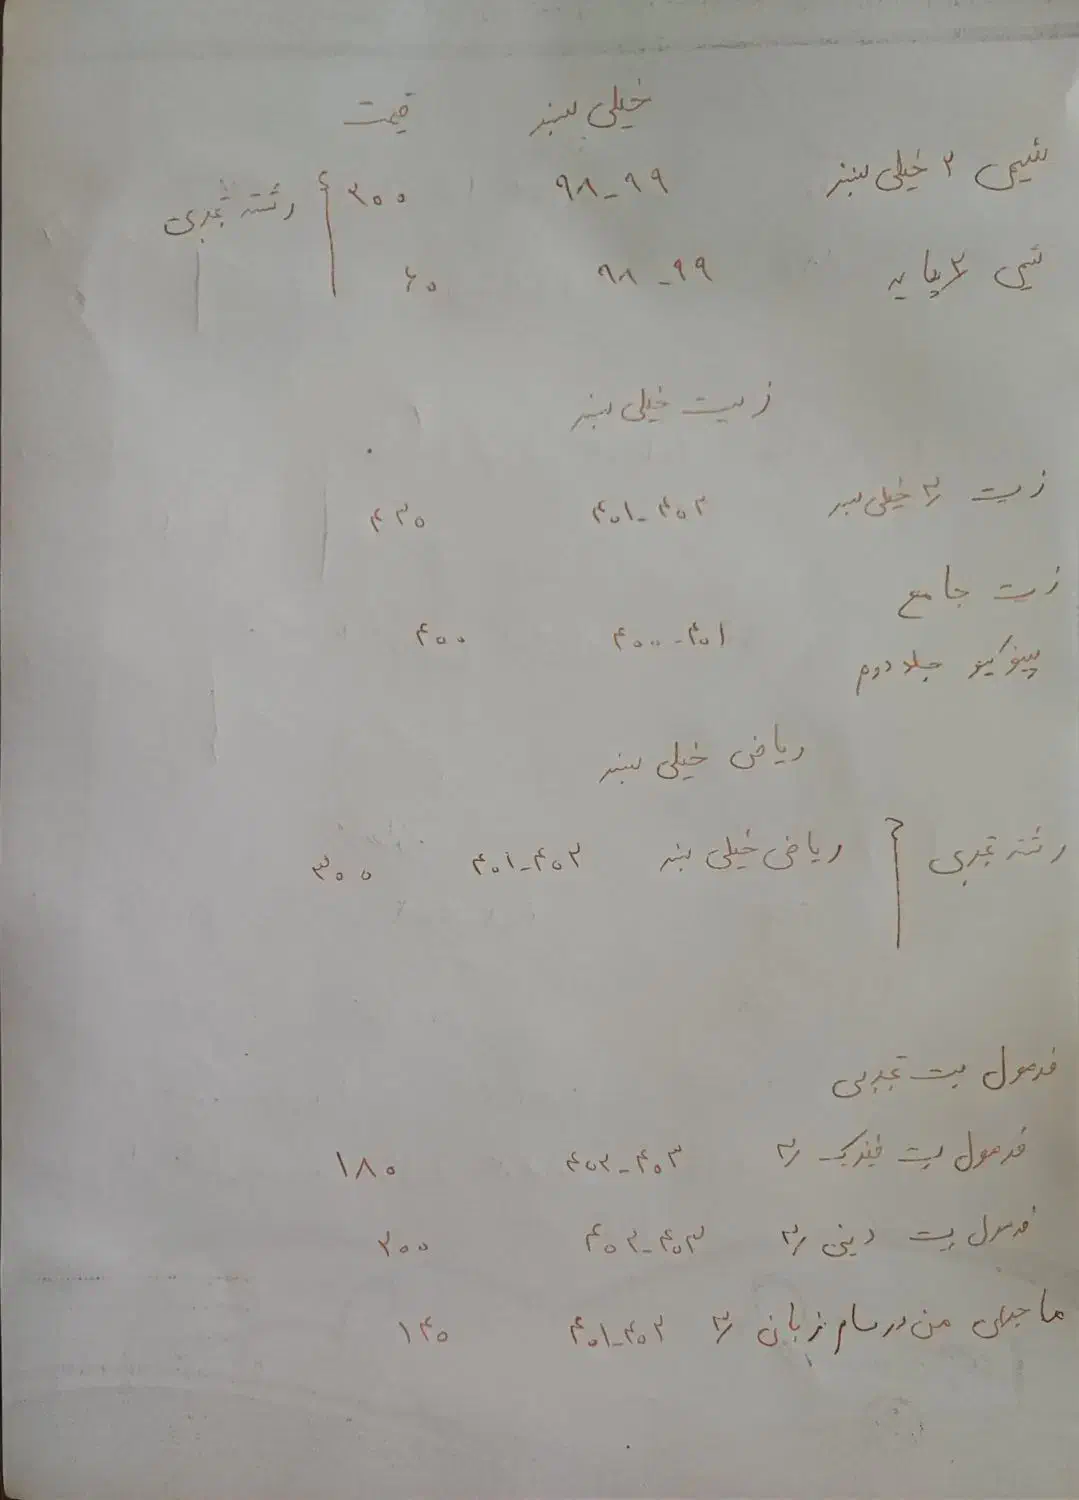 خیلی سبز قیمت
شیمی ۲ خیلی سبز ۹۸-۹۹ ۳۰۰ } رشته تجربی
شیمی ۲ پایه ۹۸-۹۹ ۶۰
زیست خیلی سبز
زیست ۳ خیلی سبز ۴۰۱-۴۰۲ ۴۳۰
زیست جامع
۴۰۰-۴۰۱ ۴۰۰
پینوکیو جلد دوم
ریاضی خیلی سبز
رشته تجربی { ریاضی خیلی سبز ۴۰۱-۴۰۲ ۳۰۰
فرمول بیست تجربی
فرمول بیست فیزیک ۳ ۴۰۲-۴۰۳ ۱۸۰
فرمول بیست دینی ۳ ۴۰۲-۴۰۳ ۲۰۰
ماجرای من و درسام زبان ۳ ۴۰۱-۴۰۲ ۱۴۰